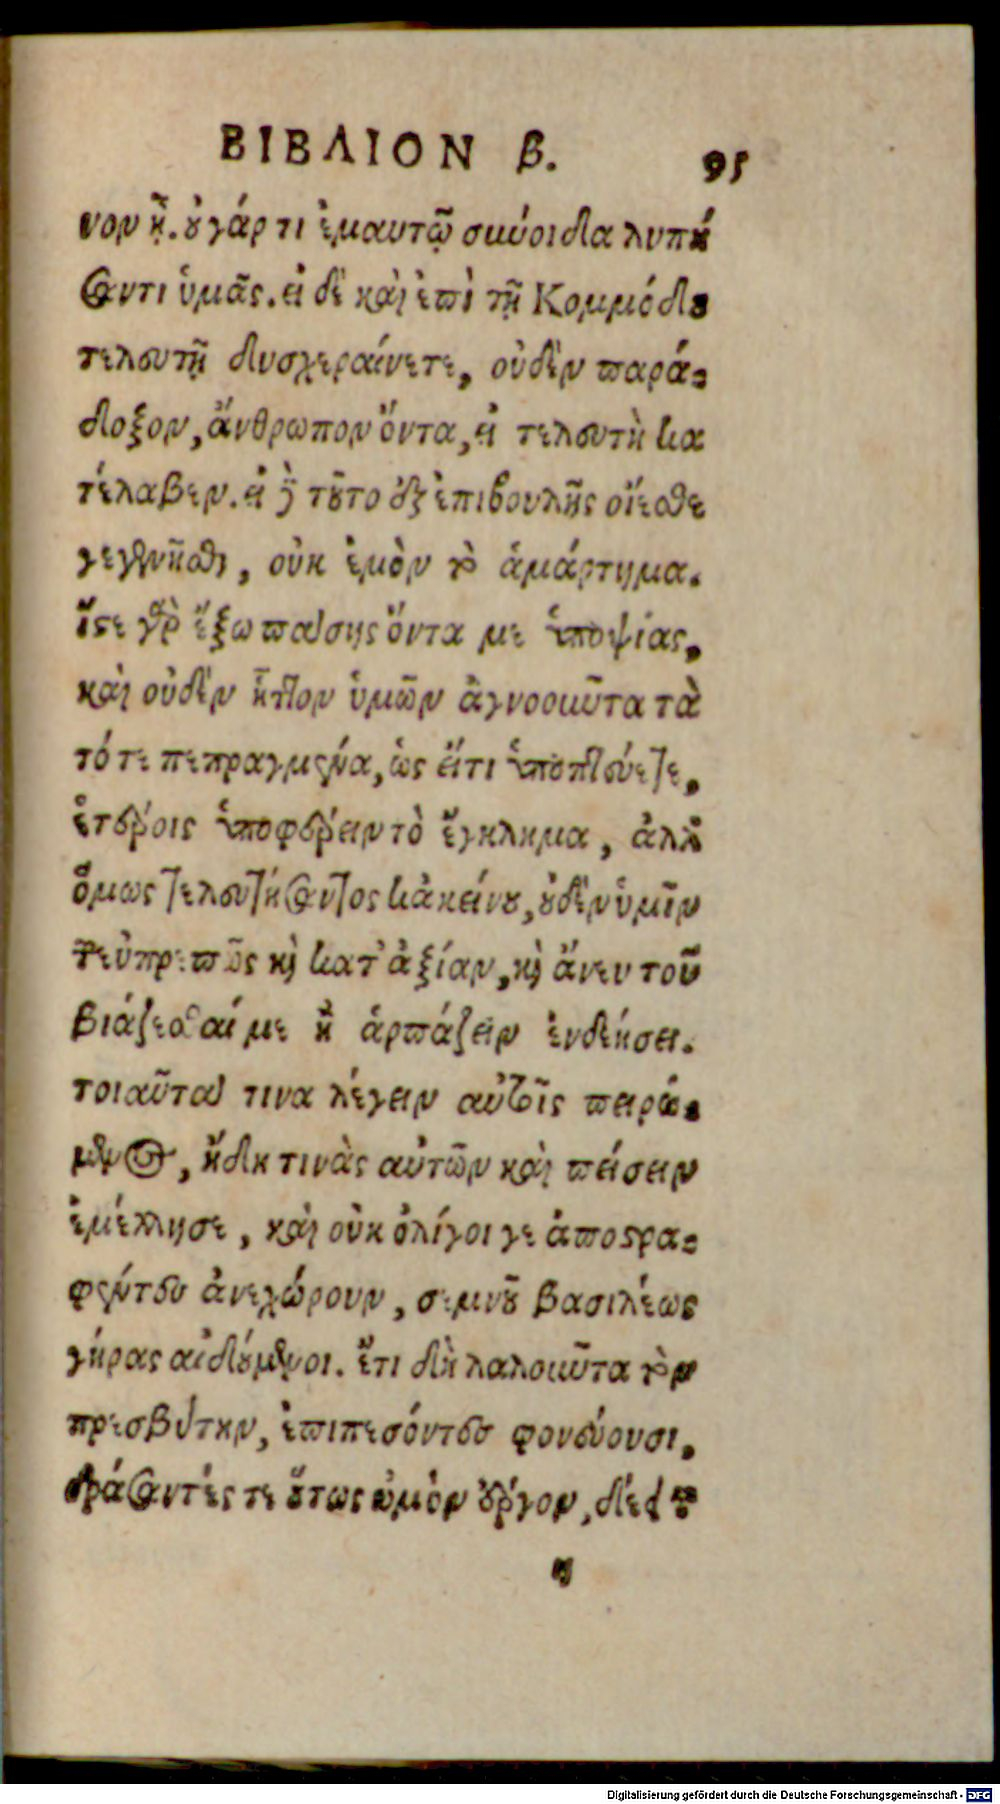 ΒΙΒΛΙΟΝ β. 95
νον ᾖ. οὐ γάρ τι ἐμαυτῷ σύνοιδα λυπή
σαντι ὑμᾶς. εἰ δὲ καὶ ἐπὶ τῇ Κομμόδου
τελευτῇ δυσχεραίνετε, οὐδὲν παρά-
δοξον, ἄνθρωπον ὄντα, εἰ τελευτὴ κα
τέλαβεν. εἰ δὲ τοῦτο ἐξ ἐπιβουλῆς οἴεσθε
γεγενῆσθαι, οὐκ ἐμὸν τὸ ἁμάρτημα.
ἴστε γὰρ ἔξω πάσης ὄντα με ὑποψίας,
καὶ οὐδὲν ἧττον ὑμῶν ἀγνοοῦντα τὰ
τότε πεπραγμένα, ὡς εἴ τι ὑποπτεύετε,
ἑτέροις ὑποφέρειν τὸ ἔγκλημα, ἀλλ'
ὅμως τελευτήσαντος κἀκείνου, οὐδὲν ὑμῖν
τ εὐπρεπῶς καὶ κατ' ἀξίαν, καὶ ἄνευ τοῦ
βιάζεσθαί με ἢ ἁρπάζειν ἐνδεήσει.
τοιαῦτα τινα λέγειν αὐτοῖς πειρώ-
μενος, ἤδη τινὰς αὐτῶν καὶ πείσειν
ἐμέλλησε, καὶ οὐκ ὀλίγοι γε ἀποστρα-
φέντες ἀνεχώρουν, σεμνοῦ βασιλέως
γήρας αἰδούμενοι. ἔτι δὴ λαλοῦντα τὸν
πρεσβύτην, ἐπιπεσόντες φονεύουσι.
δράσαντές τε οὕτως ὠμὸν ἔργον, δίεσ-
η
Digitalisierung gefördert durch die Deutsche Forschungsgemeinschaft - DFG